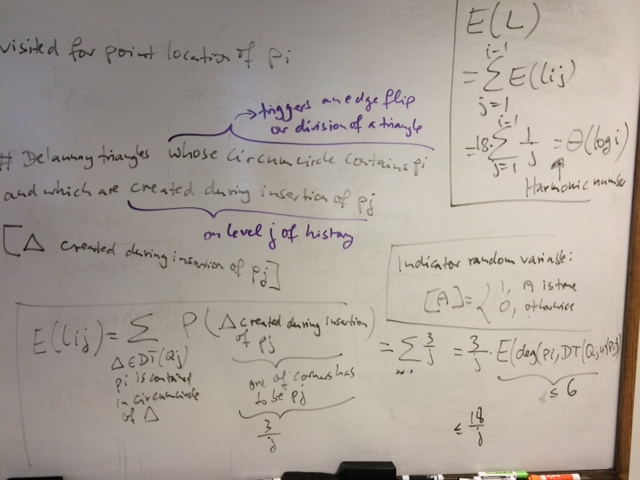 visited for point location of pi
→triggers an edge flip
or division of a triangle
# Delaunay triangles whose circumcircle contains pi
and which are created during insertion of pj
on level j of history
[Δ created during insertion of pj]
E(L)
= i-1 ∑ j=1 E(lij)
=18· i-1 ∑ j=1 1/j = Θ(log i)
Harmonic number
Indicator random variable:
[A]= { 1, A is true
0, otherwise
E(lij)= ∑ P(Δ created during insertion of pj)
Δ∈DT(Qj)
pi is contained
in circumcircle
of Δ
one of corners has
to be pj
3/j
= ∑ 3/j = 3/j · E(deg(pi, DT(Qj∪{pi})
≤ 6
≤ 18/j